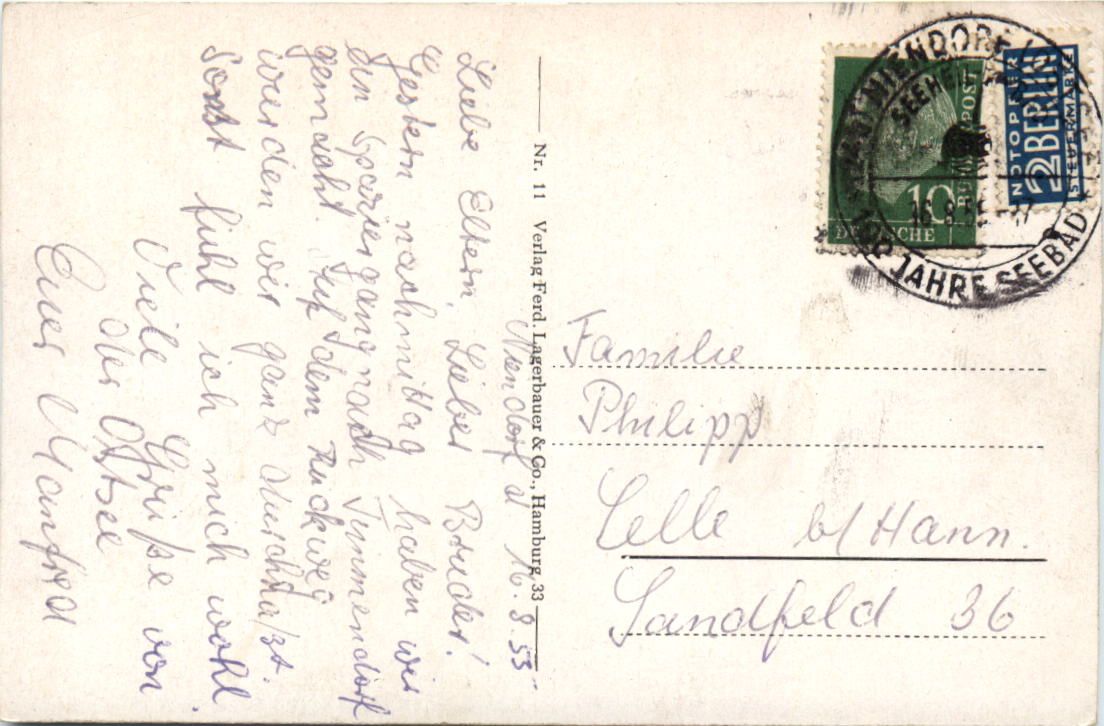 NIENDORF
SEEHEIL
100 JAHRE SEEBAD
16.8.55
10
DEUTSCHE
BUNDESPOST
NOTOPFER
2 BERLIN
STEUERMARKE
Nr. 11 Verlag Ferd. Lagerbauer & Co., Hamburg 33
Niendorf d 16.8.55
Liebe Eltern, Lieber Bruder!
Gestern nachmittag haben wir
den Spaziergang nach Timmendorf
gemacht. Auf dem Rückweg
wurden wir ganz durchnäßt.
Sonst fühl ich mich wohl.
Viele Grüße von
der Ostsee
Euer Manfred
Familie
Philipp
Celle b/Hann.
Sandfeld 36